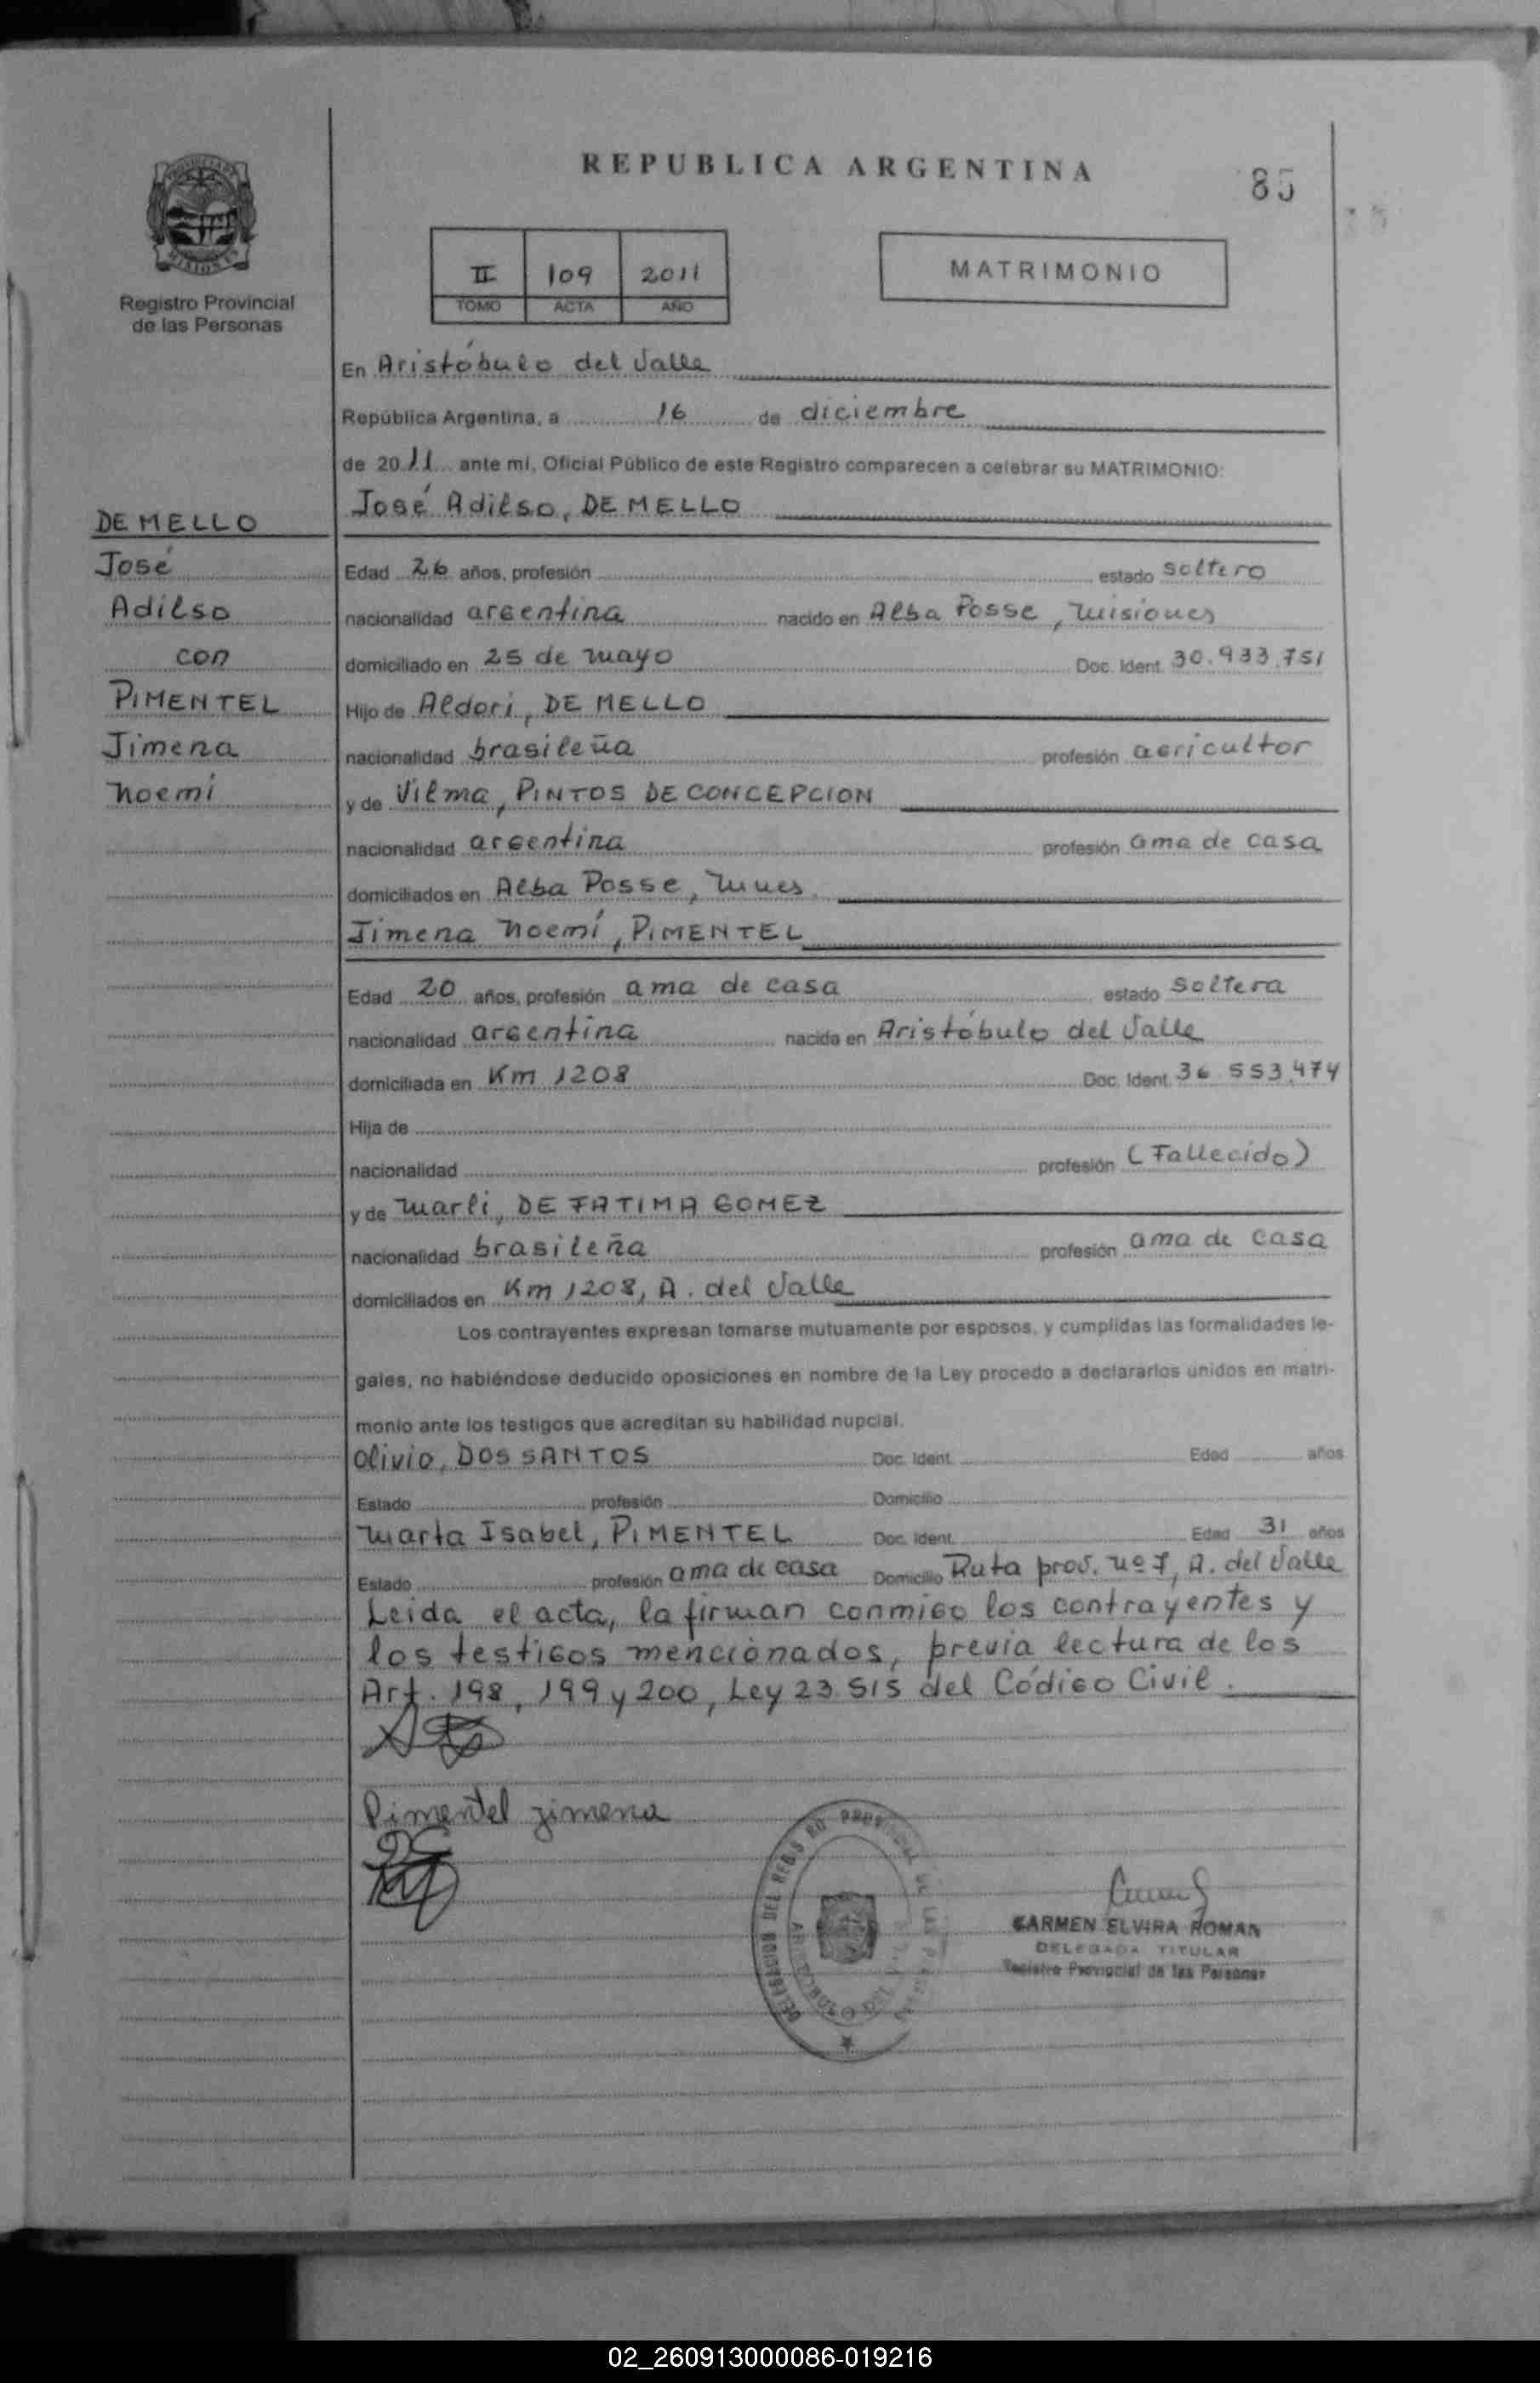 REPUBLICA ARGENTINA
85
Registro Provincial
de las Personas
II 109 2011
TOMO ACTA AÑO
MATRIMONIO
En Aristóbulo del Valle
República Argentina, a 16 de diciembre
de 2011 ante mí, Oficial Público de este Registro comparecen a celebrar su MATRIMONIO:
José Adilso, DE MELLO
DE MELLO
José
Adilso
con
PIMENTEL
Jimena
Noemí
Edad 26 años, profesión estado soltero
nacionalidad argentina nacido en Alba Posse, Misiones
domiciliado en 25 de Mayo Doc. Ident. 30.933.751
Hijo de Aldori, DE MELLO
nacionalidad brasileña profesión agricultor
y de Vilma, PINTOS DE CONCEPCION
nacionalidad argentina profesión ama de casa
domiciliados en Alba Posse, Mnes
Jimena Noemí, PIMENTEL
Edad 20 años, profesión ama de casa estado soltera
nacionalidad argentina nacida en Aristóbulo del Valle
domiciliada en Km 1208 Doc. Ident. 36.553.474
Hija de
nacionalidad profesión (Fallecido)
y de Marli, DE FATIMA GOMEZ
nacionalidad brasileña profesión ama de casa
domiciliados en Km 1208, A. del Valle
Los contrayentes expresan tomarse mutuamente por esposos, y cumplidas las formalidades le-
gales, no habiéndose deducido oposiciones en nombre de la Ley procedo a declararlos unidos en matri-
monio ante los testigos que acreditan su habilidad nupcial.
Olivio, DOS SANTOS Doc. Ident. Edad años
Estado profesión Domicilio
Marta Isabel, PIMENTEL Doc. Ident. Edad 31 años
Estado profesión ama de casa Domicilio Ruta prov. Nº 7, A. del Valle
Leida el acta, la firman conmigo los contrayentes y
los testigos mencionados, previa lectura de los
Art. 198, 199 y 200, Ley 23.515 del Código Civil.
Pimentel Jimena
CARMEN ELVIRA ROMAN
DELEGADA TITULAR
Registro Provincial de las Personas
02_260913000086-019216